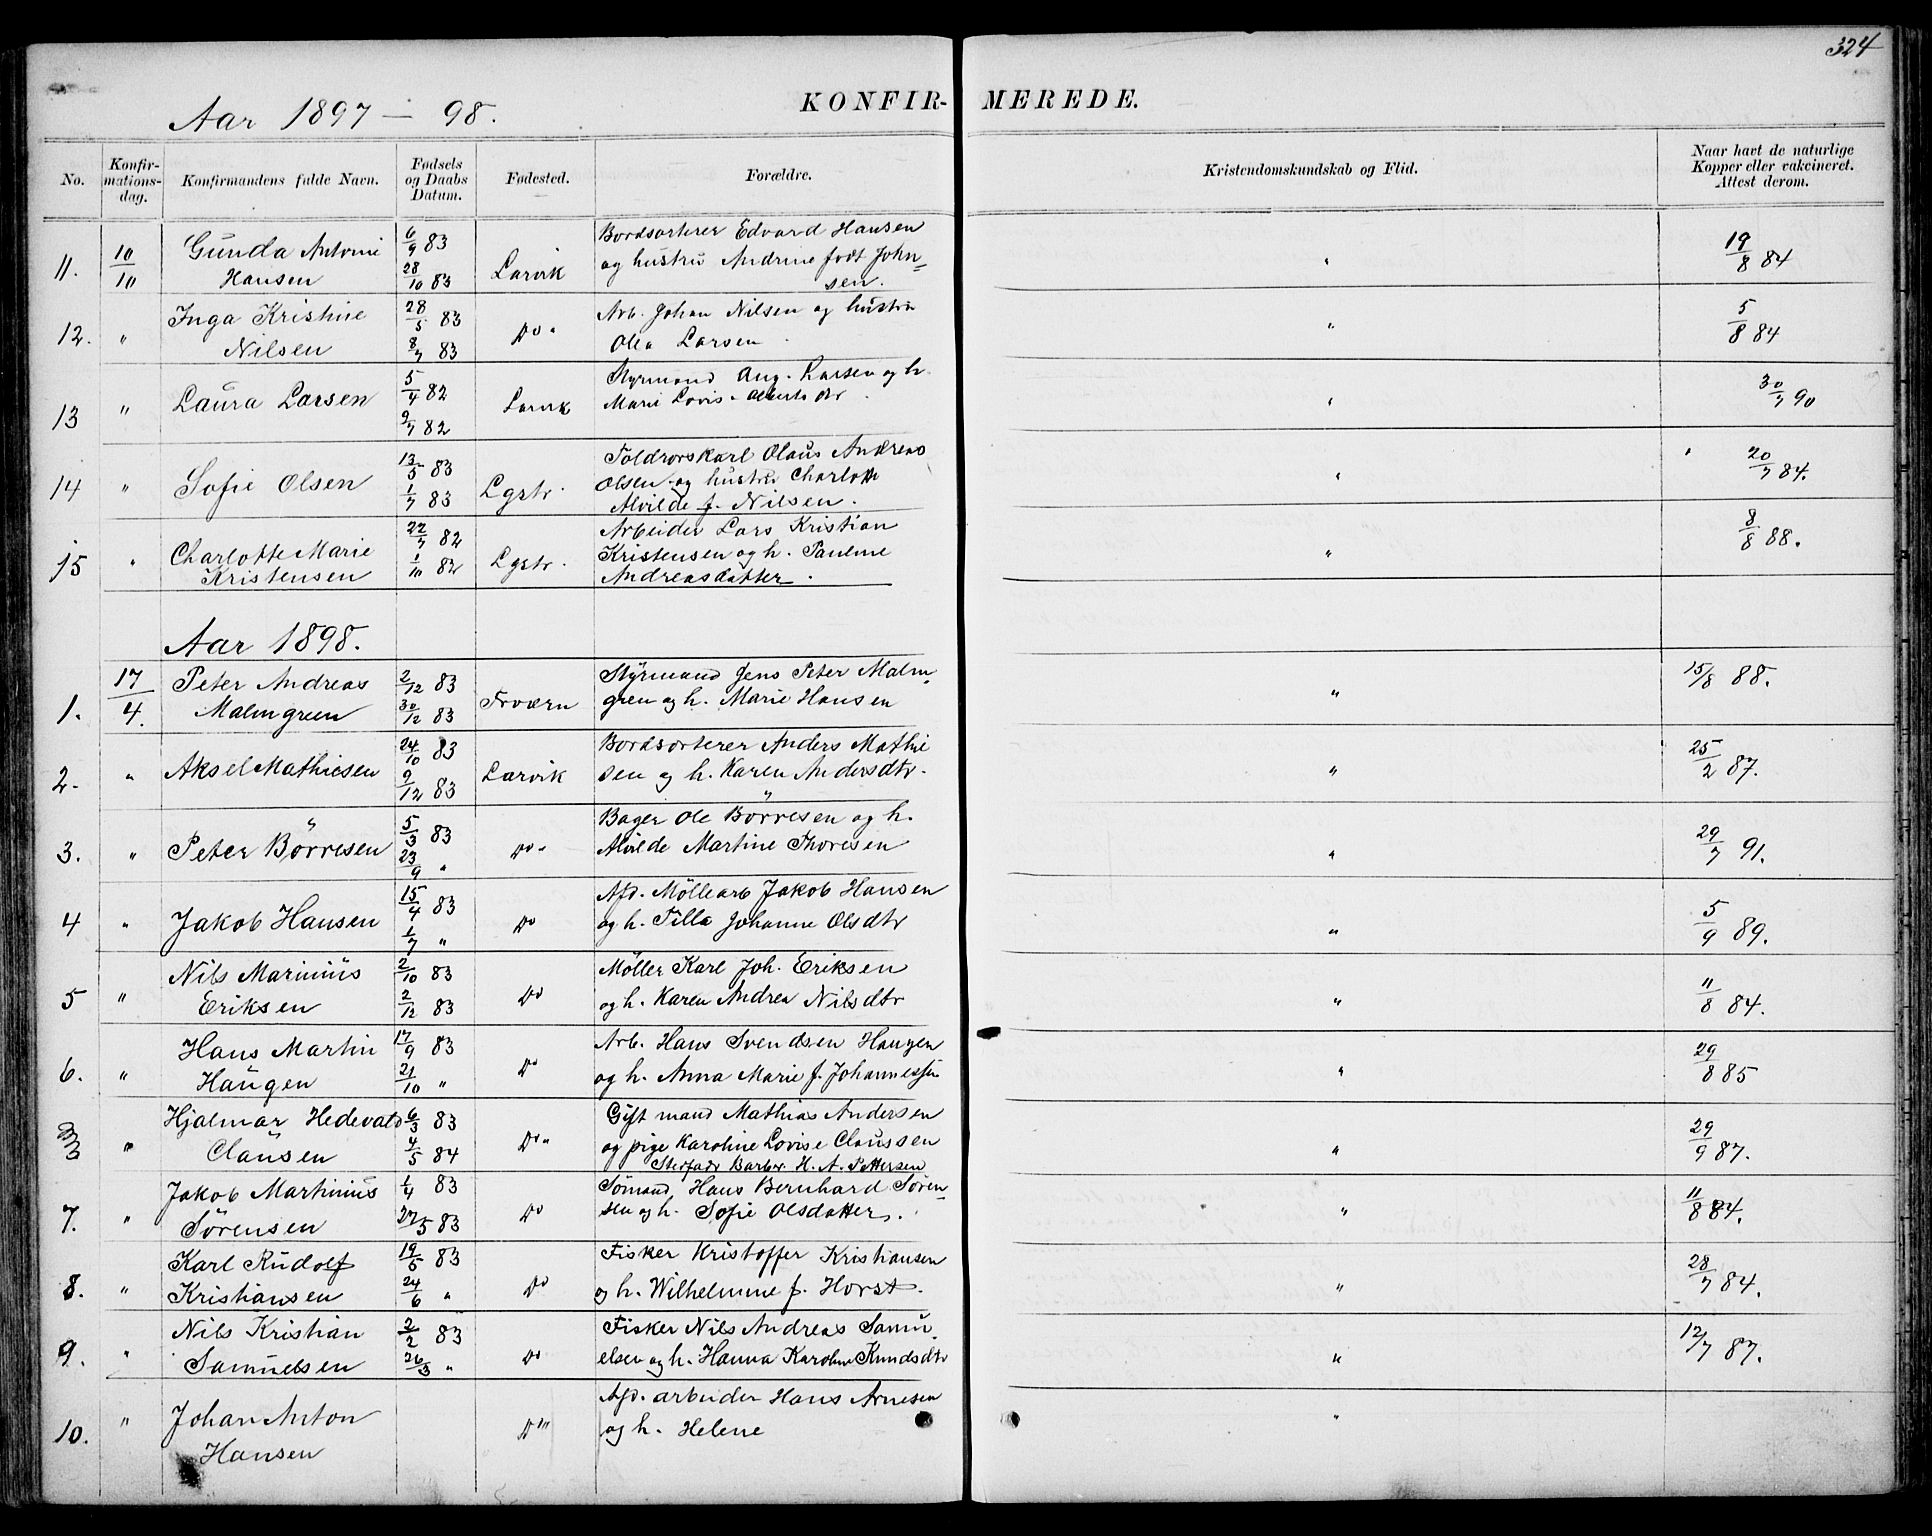 324
KONFIR- MEREDE.
Aar 1897 - 98.
No. Konfir-mations-dag. Konfirmandens fulde Navn. Fødsels og Daabs Datum. Fødested. Forældre. Kristendomskundskab og Flid. Naar havt de naturlige Kopper eller vakcineret. Attest derom.
11. 10/10 Gunda Antonie Hansen 6/9 83 28/10 83 Larvik Bordsorterer Edvard Hansen og hustru Andrine født John=sen. " 19/8 84
12. " Inga Kristine Nilsen 28/5 83 8/7 83 Do " Arb. Johan Nilsen og hustru Olea Larsen " 5/8 84
13 " Laura Larsen 5/4 82 9/7 82 Larvik Styrmand Aug. Larsen og h. Marie Lovis. Albertsdtr " 30/7 90
14 " Sofie Olsen 13/5 83 1/7 83 Lgstr. Toldrorskarl Olaus Andreas Olsen og hustru Charlotte Alvilde f. Nilsen. " 20/7 84.
15 " Charlotte Marie Kristensen 22/7 82 1/10 82 Lgstr. Arbeider Lars Kristian Kristensen og h. Pauline Andreasdatter. " 8/8 88.
Aar 1898.
1. 17/4. Peter Andreas Malmgreen 2/12 83 30/12 83 Frværn Styrmand Jens Peter Malm=gren og h. Marie Hansen " 15/8 88.
2. " Aksel Mathiesen 24/10 83 9/12 83 Larvik Bordsorterer Anders Mathiesen og h. Karen Andersdtr. " 25/2 87.
3. " Peter Börresen 5/3 83 23/9 " Do " Bager Ole Börresen og h. Alvilde Martine Thoresen " 29/7 91.
4 " Jakob Hansen 15/4 83 1/7 " Do Afd. Möllearb Jakob Hansen og h. Tilla Johanne Olsdtr " 5/9 89.
5 " Nils Marinius Eriksen 2/10 83 2/12 83 Do Møller Karl Joh. Eriksen og h. Karen Andrea Nilsdtr " 11/8 84.
6. " Hans Martin Haugen 17/9 83 21/10 " Do Arb. Hans Svendsen Haugen og h. Anna Marie f. Johannessen " 29/8 85
" Hjalmar Hedevald Clausen 6/3 83 4/5 84 Do " Gift mand Mathias Andersen og pige Karoline Lovise Claussen Stedfadr Barber H. A. Pettersen " 29/9 87.
7. " Jakob Martinius Sörensen 1/4 83 27/5 83 Do Sömand Hans Bernhard Sören=sen og h. Sofie Olsdatter. " 11/8 84.
8. " Karl Rudolf Kristiansen 19/5 83 24/6 " Do Fisker Kristoffer Kristiansen og h. Wilhelmine f. Horst. " 28/7 84.
9. " Nils Kristian Samuelsen 2/2 83 26/3 " Do Fisker Nils Andreas Samu=elsen og h. Hanna Karoline Knudsdtr " 12/7 87.
10. " Johan Anton Hansen Do " Afd. arbeider Hans Arnesen og h. Helene "